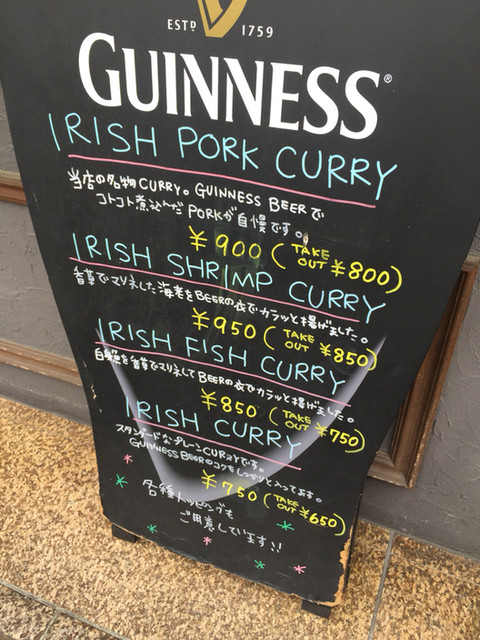 ESTD 1759
GUINNESS®
IRISH PORK CURRY
当店の名物CURRY。GUINNESS BEERで
コトコト煮込んだPORKが自慢です。
¥900(TAKE OUT ¥800)
IRISH SHRIMP CURRY
香草でマリネした海老をBEERの衣でカラッと揚げました。
¥950(TAKE OUT ¥850)
IRISH FISH CURRY
白身魚を香草でマリネしてBEERの衣でカラッと揚げました。
¥850(TAKE OUT ¥750)
IRISH CURRY
スタンダードなプレーンCURRYです。
GUINNESS BEERのコクもしっかりと入ってます。
¥750(TAKE OUT ¥650)
各種トッピングも
ご用意しています!!